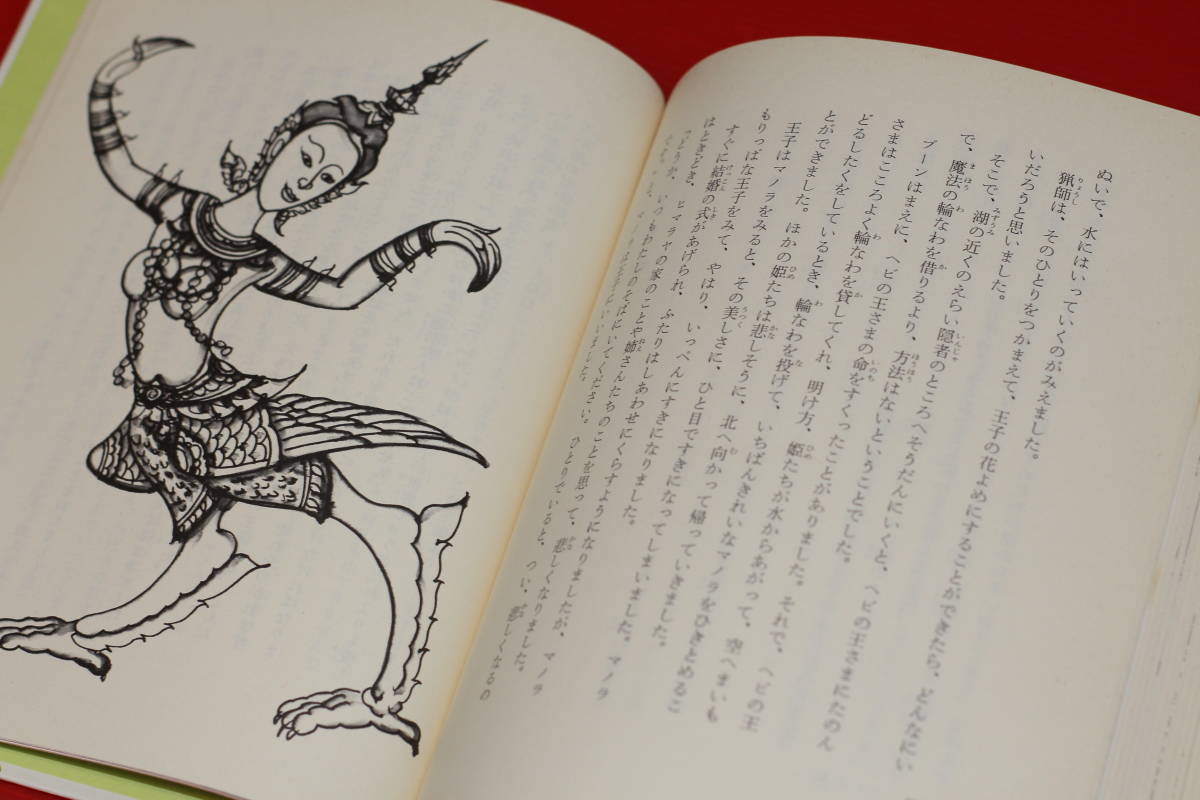 ぬいで、水にはいっていくのがみえました。
猟師は、そのひとりをつかまえて、王子の花よめにすることができたら、どんなにい
いだろうと思いました。
そこで、湖の近くのえらい隠者のところへそうだんにいくと、ヘビの王さまにたのん
で、魔法の輪なわを借りるより、方法はないということでした。
ブーンはまえに、ヘビの王さまの命をすくったことがありました。それで、ヘビの王
さまはこころよく輪なわを貸してくれ、明け方、姫たちが水からあがって、空へまいも
どるしたくをしているとき、輪なわを投げて、いちばんきれいなマノラをひきとめるこ
とができました。ほかの姫たちは悲しそうに、北へ向かって帰っていきました。
王子はマノラをみると、その美しさに、ひと目ですきになってしまいました。マノラ
もりっぱな王子をみて、やはり、いっぺんにすきになりました。
すぐに結婚の式があげられ、ふたりはしあわせにくらすようになりましたが、マノラ
はときどき、ヒマラヤの家のことや姉さんたちのことを思って、悲しくなりました。
「どうか、いつもわたしのそばにいてください。ひとりでいると、つい、悲しくなるの
マノラは王子にいいました。